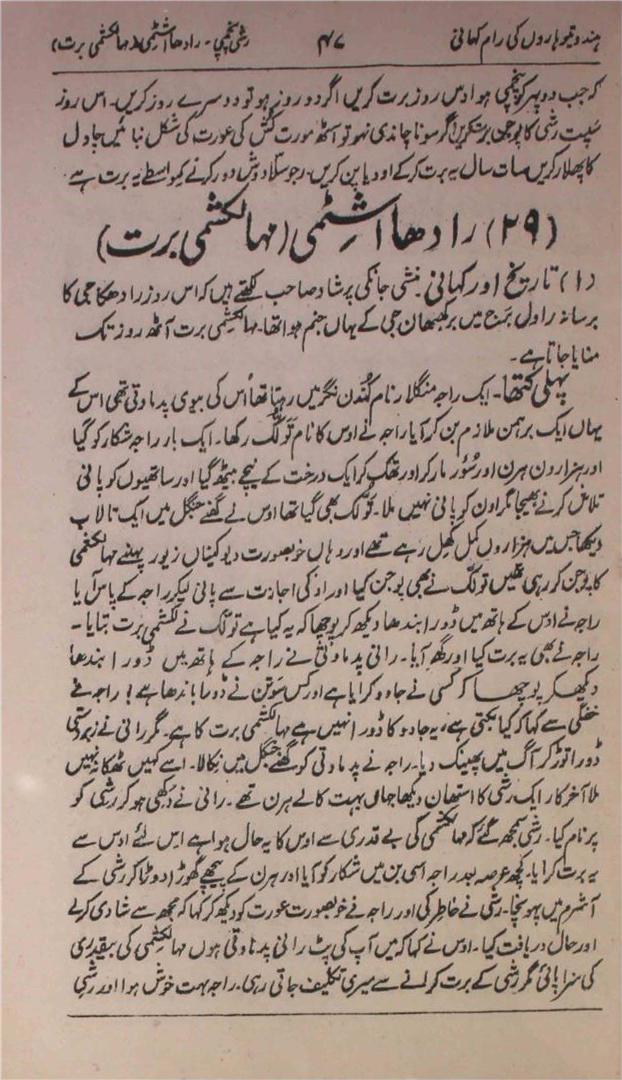 ہندو تیوہاروں کی رام کہانی
۴۷
رشی پنچمی۔ رادھا اشٹمی (مہالکشمی برت)
کہ جب دوپہر کو پنچمی ہو اوس روز برت کریں اگر دو روز ہو تو دوسرے روز کریں۔ اس روز
سپت رشی کا پوجن برت کریں اگر سونا چاندی نہو تو آٹھ مورت کُش کی عورت کی شکل بنائیں چاول
کا پھلار کریں سات سال یہ برت کر کے اودیاپن کریں۔ رجوسلا دوش دور کرنے کیواسطے یہ برت ہے۔
(۲۹) رادھا اشٹمی (مہالکشمی برت)
(۱) تاریخ اور کہانی۔ منشی جانکی پرشاد صاحب لکھتے ہیں کہ اس روز رادھکا جی کا
برسانہ راول برج میں برکھبھان جی کے یہاں جنم ہوا تھا۔ مہالکشمی برت آٹھ روز تک
منایا جاتا ہے۔
پہلی کتھا۔ ایک راجہ منگلار نام کُندن نگر میں رہتا تھا اُس کی بیوی پدماوتی تھی اس کے
یہاں ایک برہمن ملازم بن کر آیا راجہ نے اوس کا نام تَولک رکھا۔ ایک بار راجہ شکار کو گیا
اور ہزارون ہرن اور سُؤر مار کر اور تھک کر ایک درخت کے نیچے بیٹھ گیا اور ساتھیوں کو پانی
تلاش کرنے بھیجا مگر اون کو پانی نہیں ملا۔ تَولک بھی گیا تھا اوس نے گھنے جنگل میں ایک تالاب
دیکھا جس میں ہزاروں کمل کھِل رہے تھے اور وہاں خوبصورت دیو کنیاں زیور پہنے مہالکشمی
کا پوجن کر رہی تھیں تولک نے بھی پوجن کیا اور اونکی اجازت سے پانی لیکر راجہ کے پاس آیا
راجہ نے اوس کے ہاتھ میں ڈورا بندھا دیکھ کر پوچھا کہ یہ کیا ہے تَولک نے لکشمی برت بتایا۔
راجہ نے بھی یہ برت کیا اور گھر آیا۔ رانی پدماوتی نے راجہ کے ہاتھ میں ڈورا بندھا
دیکھکر پوچھا کہ کسی نے جادو کرایا ہے اور کس سوتن نے ڈورا باندھا ہے! راجہ نے
خفگی سے کہا کہ کیا بکتی ہے، یہ جادو کا ڈورا نہیں ہے مہالکشمی برت کا ہے۔ مگر رانی نے زبردستی
ڈورا توڑ کر آگ میں پھینک دیا۔ راجہ نے پدماوتی کو گھنے جنگل میں نکالا۔ اسے کہیں ٹھکانہ نہیں
ملا آخر کار ایک رشی کا استھان دیکھا جہاں بہت کالے ہرن تھے۔ رانی نے دکھی ہو کر رشی کو
پرنام کیا۔ رشی سمجھ گئے کہ مہالکشمی کی بے قدری سے اوس کا یہ حال ہوا ہے اس لئے اوس سے
یہ برت کرایا۔ کچھ عرصہ بعد راجہ اسی بن میں شکار کو آیا اور ہرن کے پیچھے گھوڑا دوڑا کر رشی کے
آشرم میں پہونچا۔ رشی نے خاطر کی اور راجہ نے خوبصورت عورت کو دیکھ کر کہا کہ مجھ سے شادی کرلے
اور حال دریافت کیا۔ اوس نے کہا کہ میں آپ کی پٹ رانی پدماوتی ہوں مہالکشمی کی بیقدری
کی سزا پائی مگر رشی کے برت کرانے سے میری تکلیف جاتی رہی۔ راجہ بہت خوش ہوا اور رشی